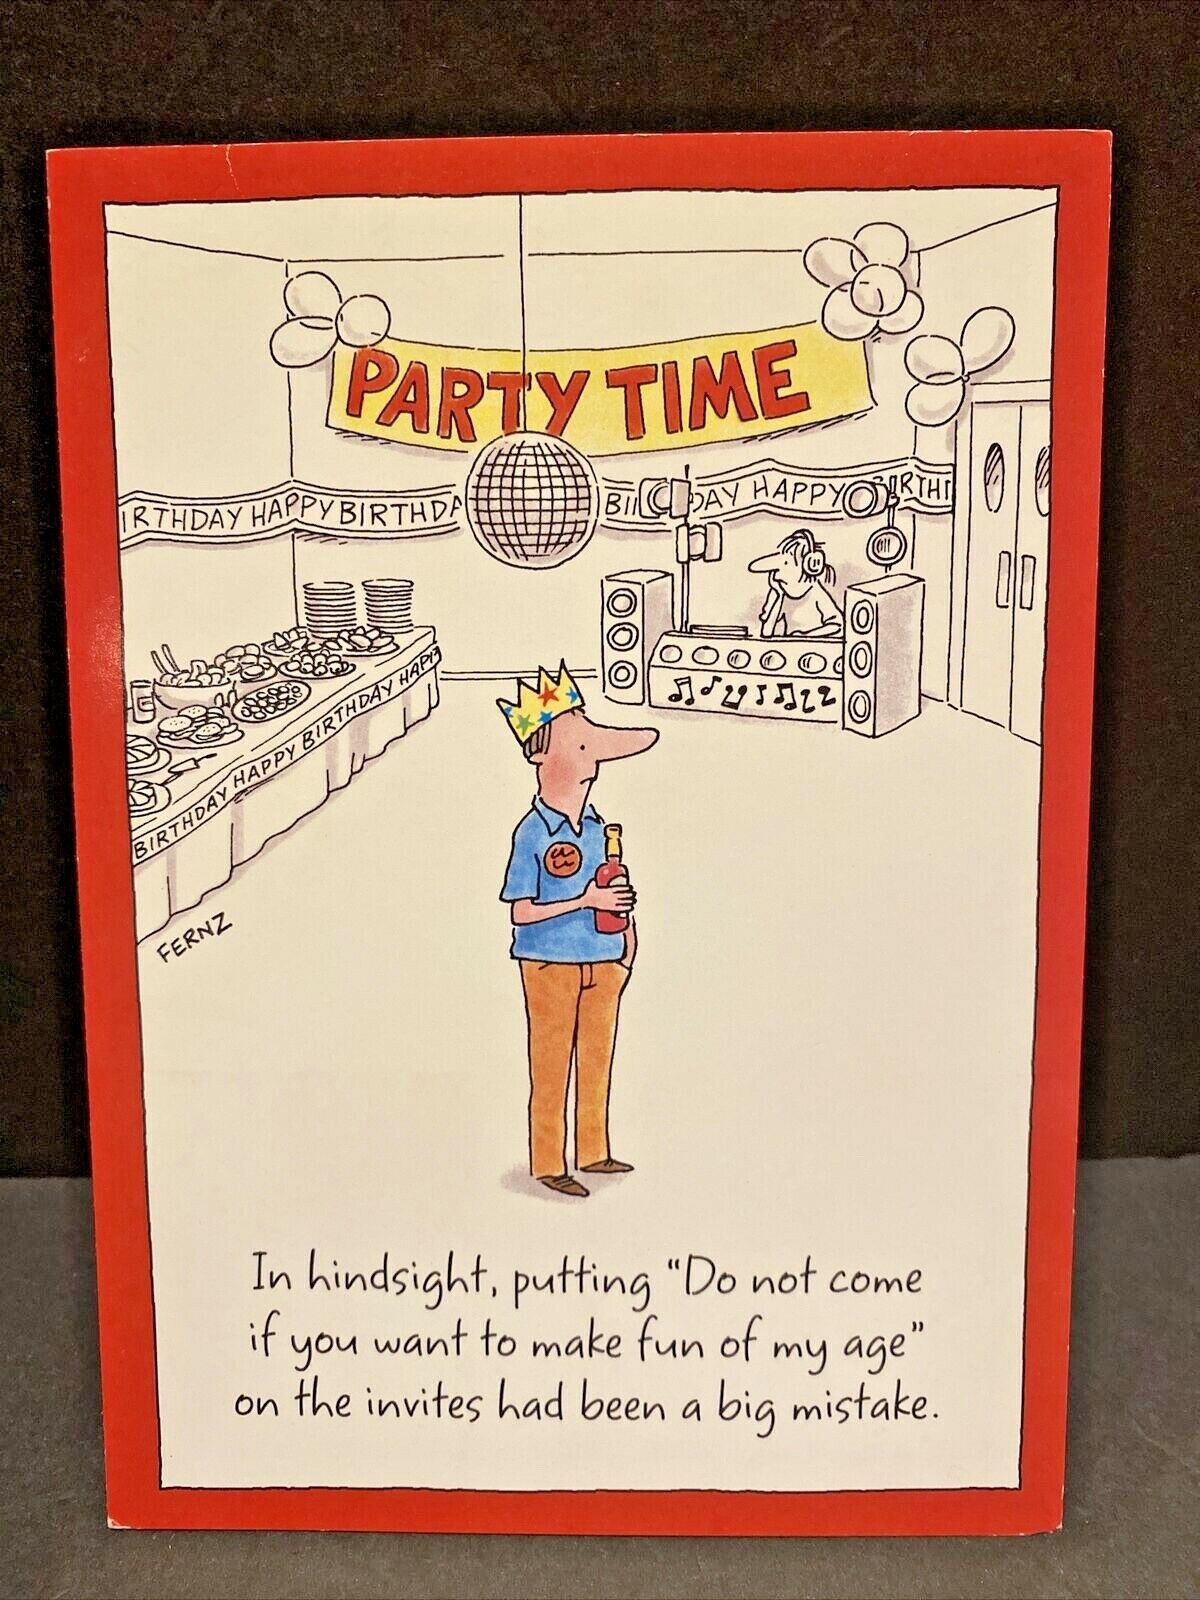 PARTY TIME
IRTHDAY HAPPY BIRTHDA
DAY HAPPY BIRTHI
BIRTHDAY HAPPY BIRTHDAY HAPP
FERNZ
In hindsight, putting “Do not come
if you want to make fun of my age”
on the invites had been a big mistake.